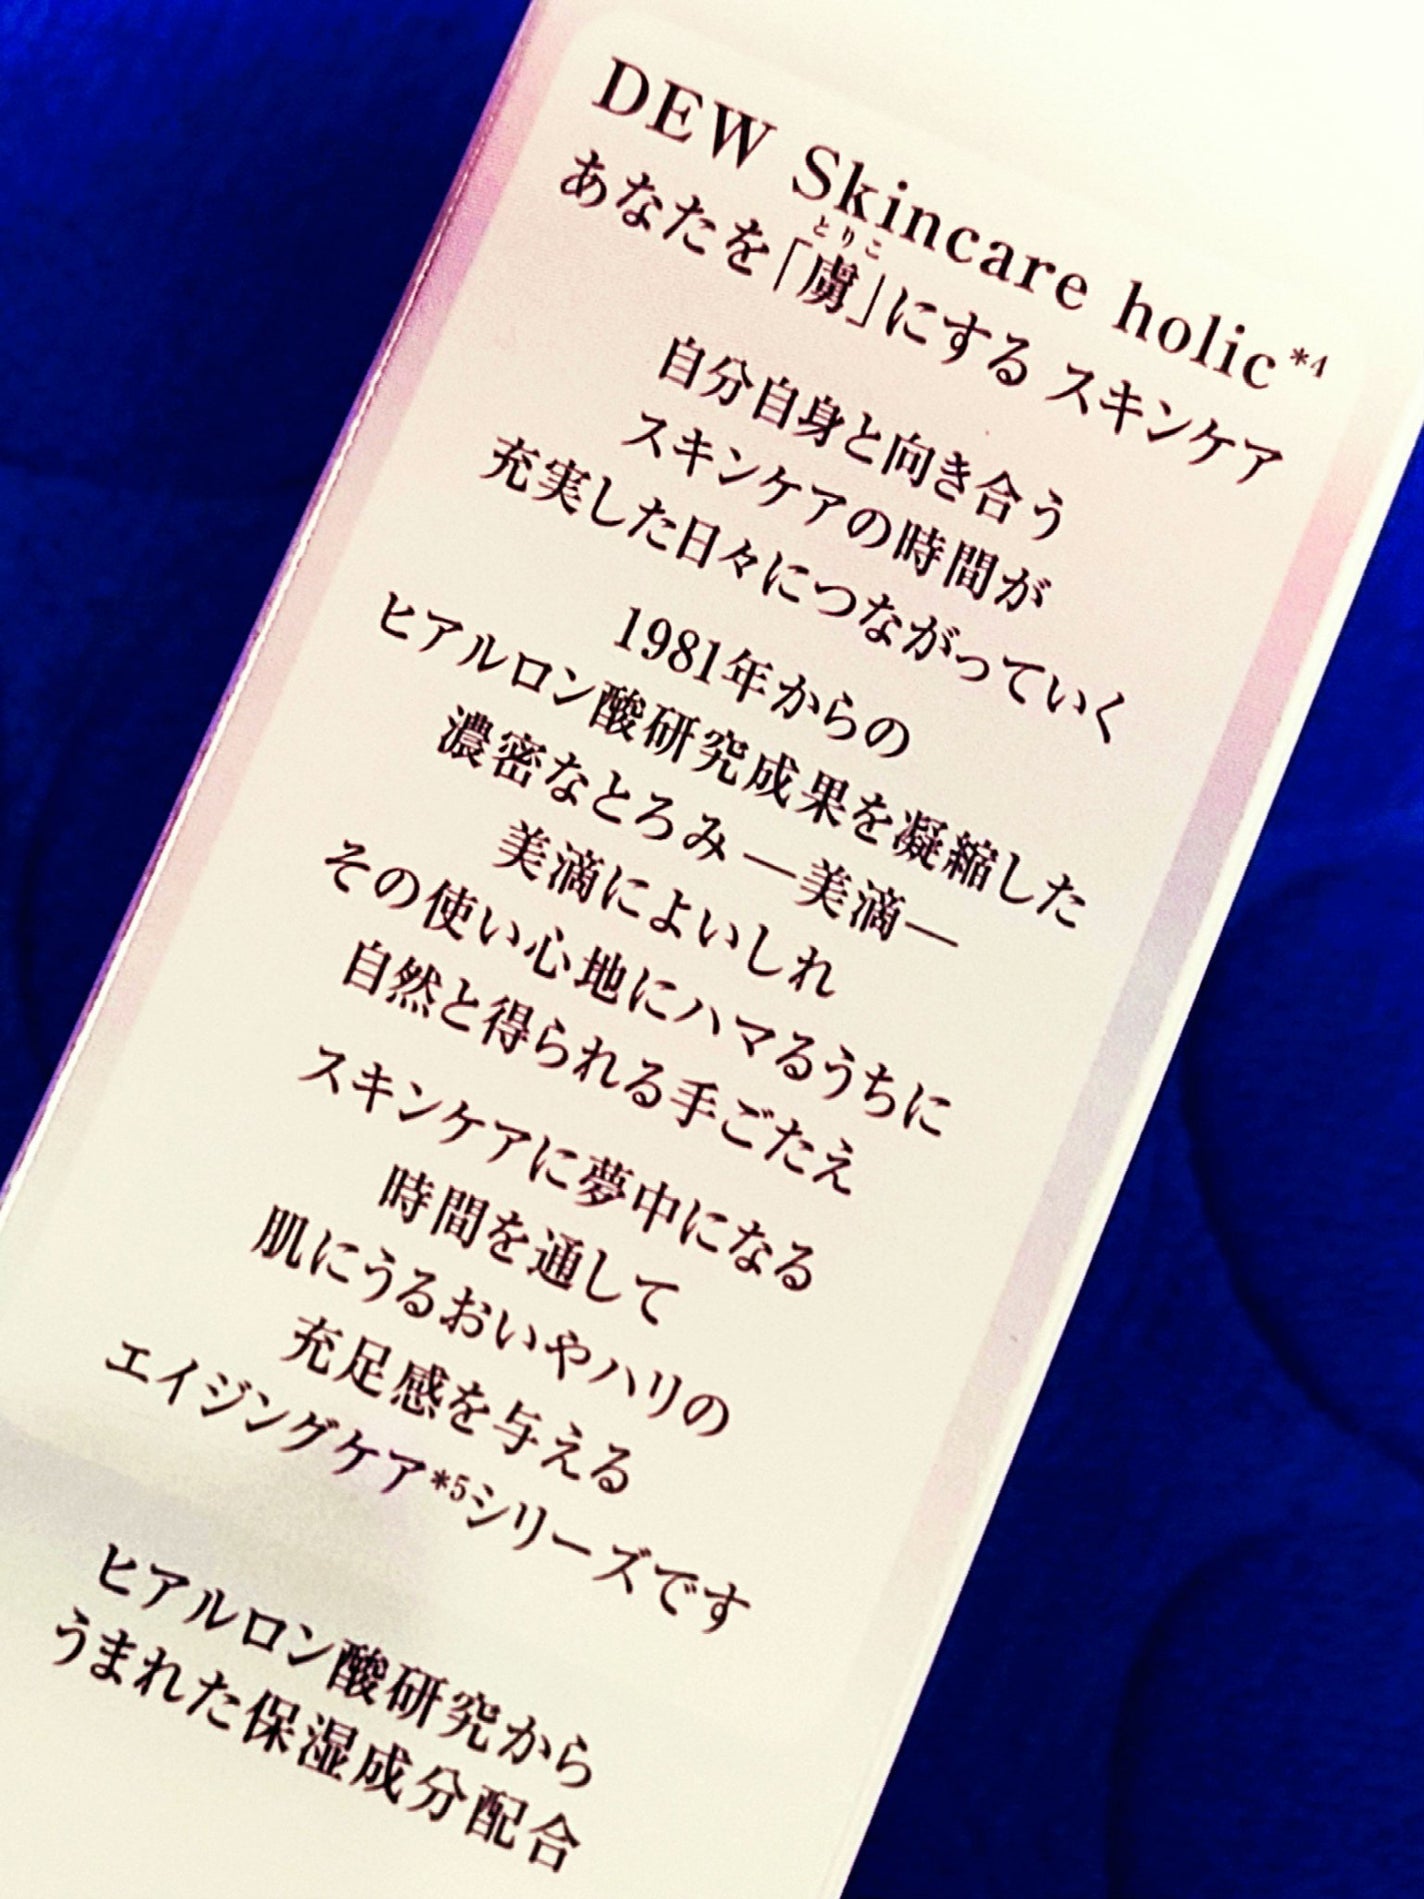 DEW Skincare holic*4
とりこ
あなたを「虜」にする スキンケア
自分自身と向き合う
スキンケアの時間が
充実した日々につながっていく
1981年からの
ヒアルロン酸研究成果を凝縮した
濃密なとろみ―美滴―
美滴によいしれ
その使い心地にハマるうちに
自然と得られる手ごたえ
スキンケアに夢中になる
時間を通して
肌にうるおいやハリの
充足感を与える
エイジングケア*5シリーズです
ヒアルロン酸研究から
うまれた保湿成分配合